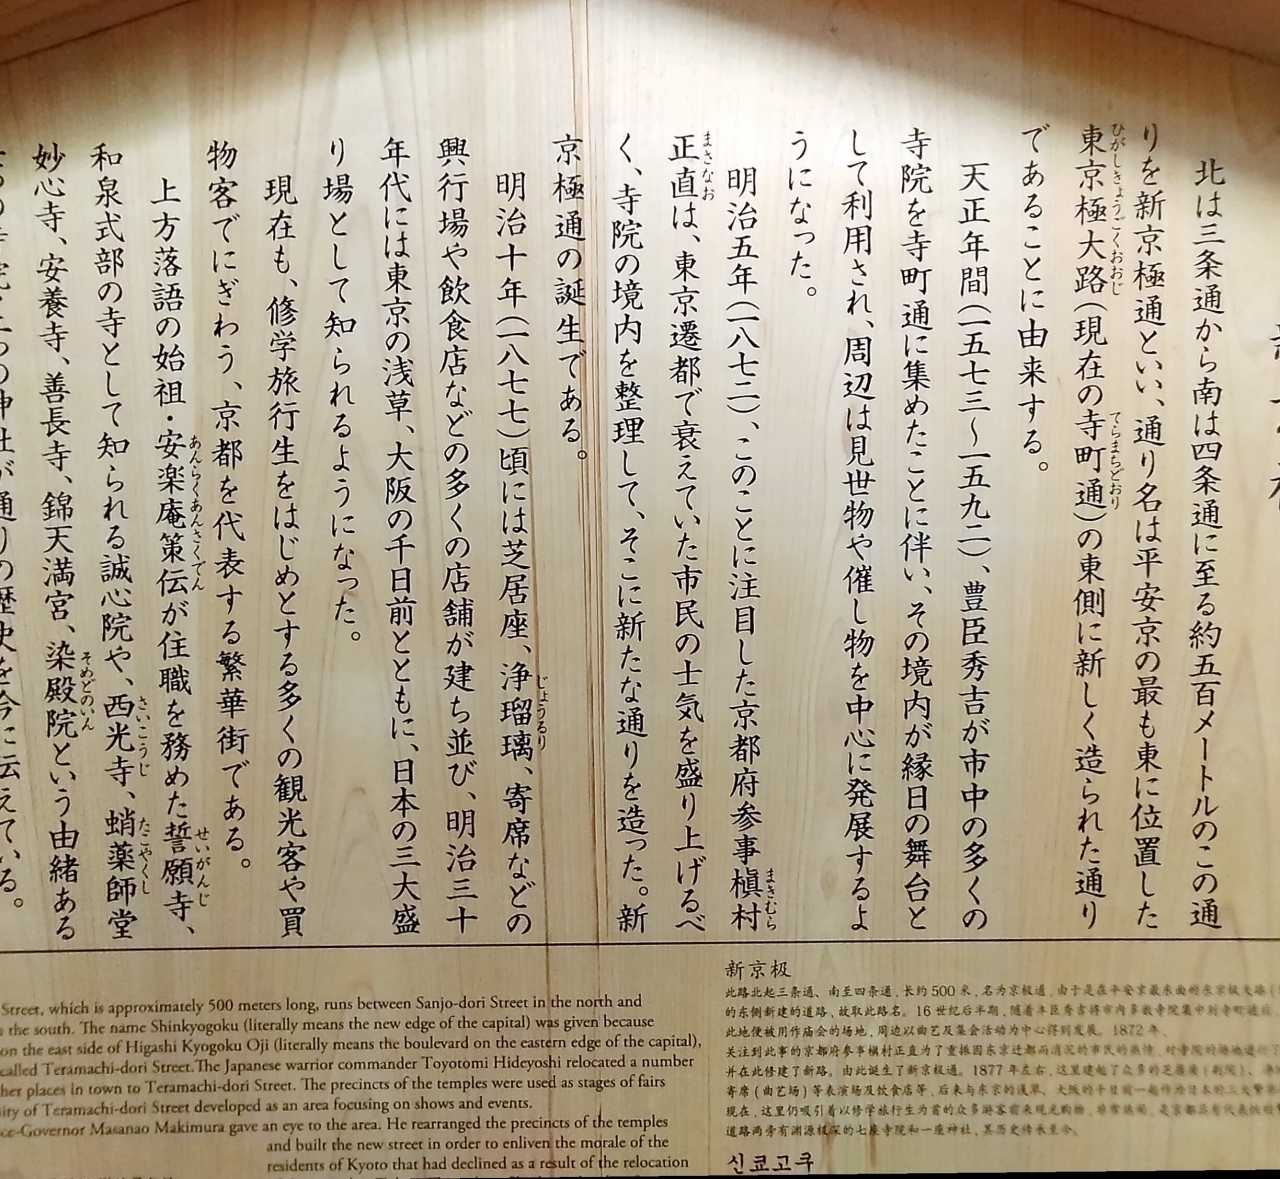 北は三条通から南は四条通に至る約五百メートルのこの通
りを新京極通といい、通り名は平安京の最も東に位置した
東京極大路(現在の寺町通)の東側に新しく造られた通り
ひがしきょうごくおおじ
てらまちどおり
であることに由来する。
天正年間(一五七三〜一五九二)、豊臣秀吉が市中の多くの
寺院を寺町通に集めたことに伴い、その境内が縁日の舞台と
して利用され、周辺は見世物や催し物を中心に発展するよ
うになった。
明治五年(一八七二)、このことに注目した京都府参事槇村
まきむら
正直は、東京遷都で衰えていた市民の士気を盛り上げるべ
まさなお
く、寺院の境内を整理して、そこに新たな通りを造った。新
京極通の誕生である。
明治十年(一八七七)頃には芝居座、浄瑠璃、寄席などの
じょうるり
興行場や飲食店などの多くの店舗が建ち並び、明治三十
年代には東京の浅草、大阪の千日前とともに、日本の三大盛
り場として知られるようになった。
現在も、修学旅行生をはじめとする多くの観光客や買
物客でにぎわう、京都を代表する繁華街である。
上方落語の始祖・安楽庵策伝が住職を務めた誓願寺、
あんらくあんさくでん
せいがんじ
和泉式部の寺として知られる誠心院や、西光寺、蛸薬師堂
さいこうじ
たこやくし
妙心寺、安養寺、善長寺、錦天満宮、染殿院という由緒ある
そめどのいん
神社が通りの歴史を今に伝えている。
Street, which is approximately 500 meters long, runs between Sanjo-dori Street in the north and
the south. The name Shinkyogoku (literally means the new edge of the capital) was given because
on the east side of Higashi Kyogoku Oji (literally means the boulevard on the eastern edge of the capital),
called Teramachi-dori Street. The Japanese warrior commander Toyotomi Hideyoshi relocated a number
her places in town to Teramachi-dori Street. The precincts of the temples were used as stages of fairs
ity of Teramachi-dori Street developed as an area focusing on shows and events.
ce-Governor Masanao Makimura gave an eye to the area. He rearranged the precincts of the temples
and built the new street in order to enliven the morale of the
residents of Kyoto that had declined as a result of the relocation
新京极
此路北起三条通、南至四条通,长约500米,名为京极通,由于是在平安京最东面的东京极大路(
的东侧新建的道路,故取此路名。16世纪后半期,随着丰臣秀吉将市内多数寺院集中到寺町通
此地便被用作庙会的场地,周边以曲艺及集会活动为中心得到发展。1872年,
关注到此事的京都府参事槇村正直为了重振因东京迁都而消沉的市民的热情,对寺院的
并在此修建了新路。由此诞生了新京极通。1877年左右,这里建起了众多的芝居座(剧院)、
寄席(曲艺场)等表演场及饮食店等,后来与东京的浅草、大阪的千日前一起作为日本的三大
现在,这里仍吸引着以修学旅行生为首的众多游客前来观光购物,非常热闹,是京都
道路两旁有渊源极深的七座寺院和一座神社,其历史传承至今。
신쿄고쿠